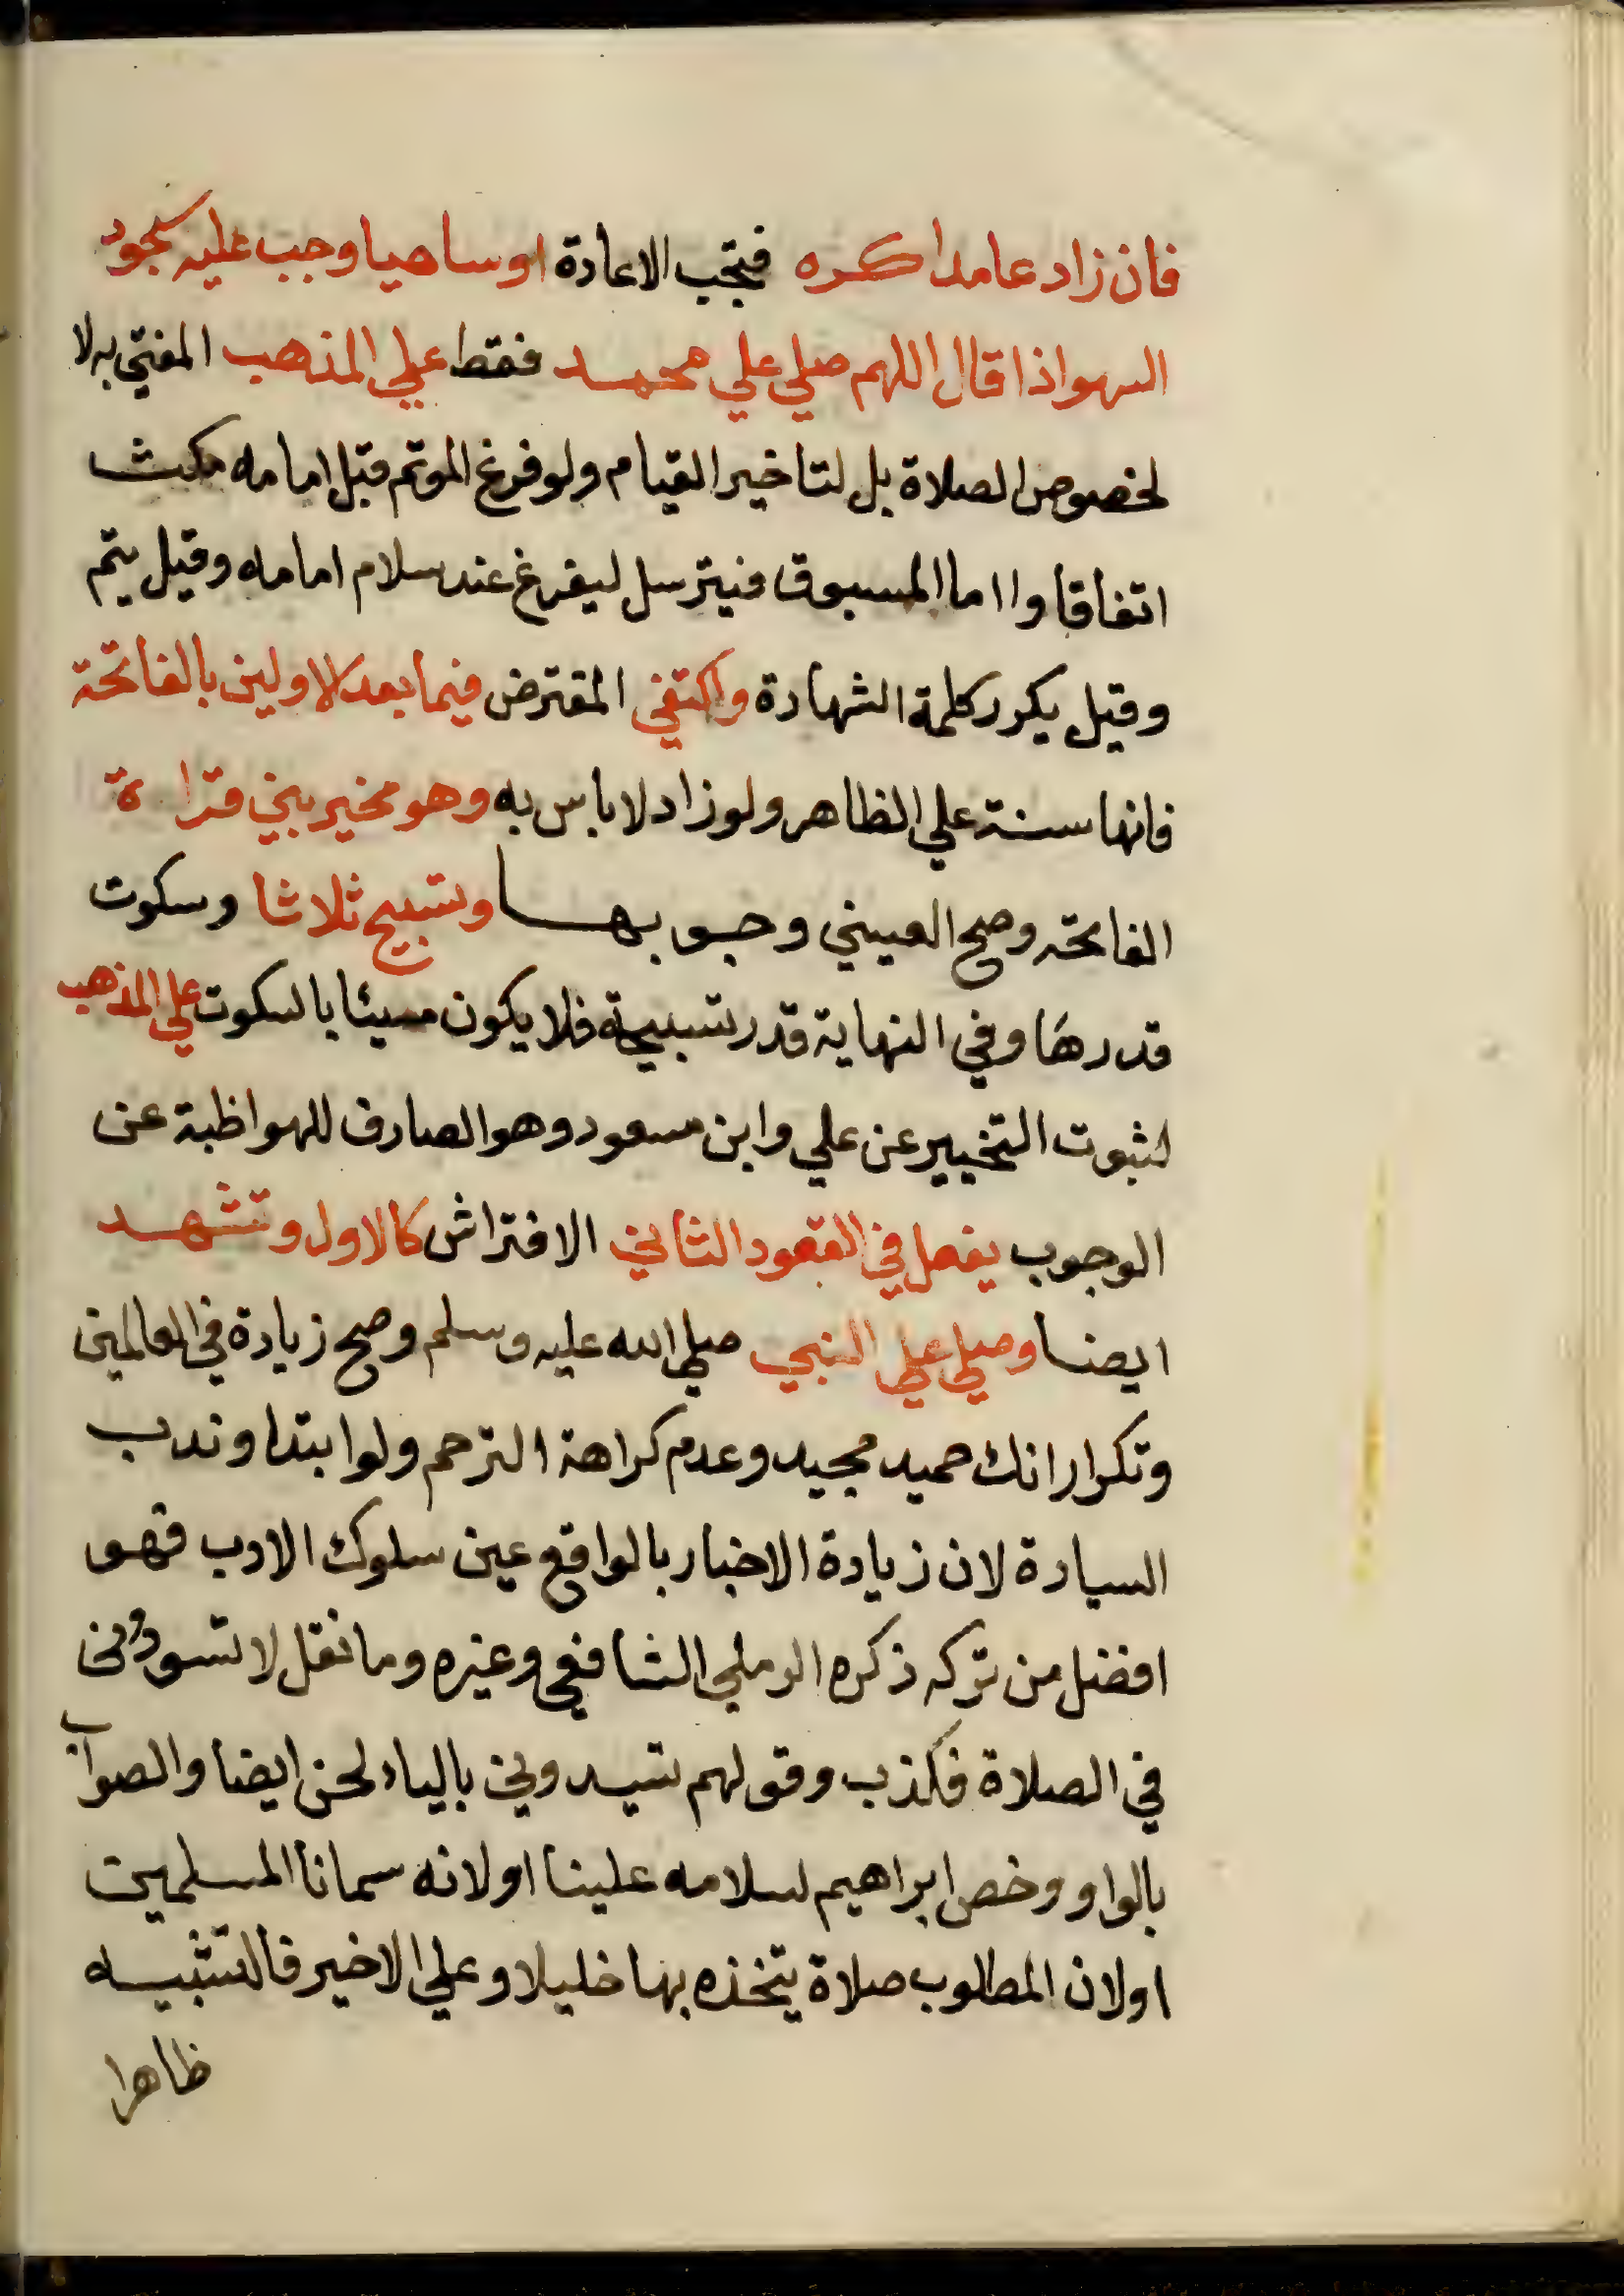 فان زاد عامدا كره فتجب الاعادة اوساهيا وجب عليه سجود
السهو اذا قال اللهم صلي علي محمد فقط علي المذهب المفتي به لا
لخصوص الصلاة بل لتاخير القيام ولو فرغ الموتم قبل امامه مكث
اتفاقا واما المسبوق فيترسل ليفرغ عند سلام امامه وقيل يتم
وقيل يكرر كلمة الشهادة واكتفي المفترض فيما بعد الاولين بالفاتحة
فانها سنة علي الظاهر ولو زاد لا باس به وهو مخير بين قراة
الفاتحة وصح العيني وجوبها وتسبيح ثلاثا وسكوت
قدرها وفي النهاية قدر تسبيحة فلا يكون مسيئا بالسكوت علي المذهب
لثبوت التخيير عن علي وابن مسعود وهو الصارف للمواظبة عن
الوجوب يفعل في القعود الثاني الافتراش كالاول وتشهد
ايضا وصلي علي النبي صلي الله عليه وسلم وصح زيادة في العالمين
وتكرار انك حميد مجيد وعدم كراهة الترحم ولو ابتدا وندب
السيادة لان زيادة الاخبار بالواقع عين سلوك الادب فهو
افضل من تركه ذكره الرملي الشافعي وغيره وما نقل لا تسودوني
في الصلاة فكذب وقولهم تسيدوني بالياء لحن ايضا والصواب
بالواو وخص ابراهيم لسلامه علينا اولانه سمانا المسلمين
اولان المطلوب صلاة يتخذه بها خليلا وعلي الاخير فالتشبيه
ظاهرا